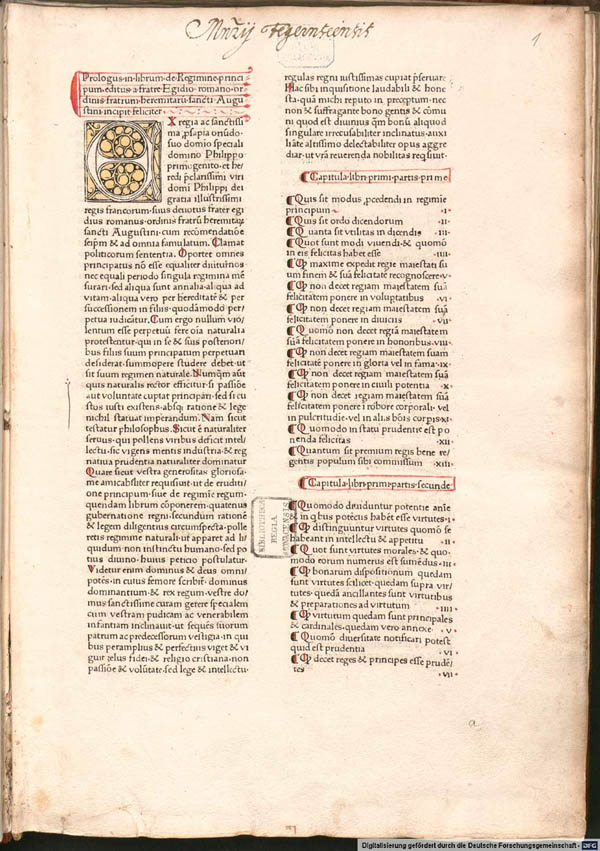 Mn̄rij Tegernseensis
1
Prologus·in·librum·de·Regimine·princi
pum·editus·a·fratre·Egidio·romano·or
dinis·fratrum·heremitarū·sancti·Augu
stini·incipit·feliciter·
EX regia ac sanctissi
ma ꝓsapia oriūdo·
suo domino speciali
domino Philippo
primogenito·et he
redi p̄clarissimi viri
domi Philippi dei
gratia illustrissimi
regis francorum·suus deuotus frater egi
dius romanus·ordinis fratrū heremitaꝝ
sancti Augustini·cum recomendatiōe
seipm̄ & ad omnia famulatum· Clamat
politicorum sententia· Oportet omnes
principatus nō esse equaliter diuturnos
nec equali periodo singula regimina mē
surari·sed aliqua sunt annalia·aliqua ad
vitam·aliqua vero per hereditatē & per
successionem in filiis·quodāmodo per/
petua iudicātur· Cum ergo nullum vio/
lentum esse perpetuū fere oīa naturalia
protestentur·qui in se & suis posteriori/
bus filiis suum principatum perpetuari
desiderat·summopere studere debet·ut
sit suum regimen naturale· Numqm̄ aut̄
quis naturalis rector efficitur·si passiōe
aut voluntate cupiat principari·sed si cu
stos iusti existens·absqꝫ ratione & lege
nichil statuat imperandum· Nam sicut
testatur philosophus· Sicut ē naturaliter
seruus·qui pollens viribus deficit intel/
lectu·sic vigens mentis industria·& reg
natiua prudentia naturaliter dominatur
Quare sicut vestra generositas gloriosa·
me amicabiliter requisiuit·ut de eruditi/
one principum·siue de regimīe regum·
quendam librum cōponerem·quatenus
gubernatione regni·secundum rationē
& legem diligentius circumspecta·polle
retis regimine naturali·ut apparet ad li
quidum·non instinctu humano·sed po
tius diuino·huius peticio postulatur·
Videtur enim dominus & deus omni/
potēs·in cuius femore scribit̄· dominus
dominantium·& rex regum·vestre do/
mus sanctissime curam gerere specialem
cum vestram pudicam ac venerabilem
infantiam inclinauit·ut sequēs suorum
patrum ac predecessorum vestigia·in qui
bus peramplius & perfectius viget & vi
guit zelus fidei·& religio cristiana·non
passiōe & volūtate·sed lege & intellectu·
regulas regni iustissimas cupiat p̄seruare·
Hac sibi inquisitione laudabili & hone
sta·quā michi reputo in preceptum·nec
non & suffragante bono gentis & cōmu
ni quod est diuinius qm̄ bonū aliquod
singulare irrecusabiliter inclinatus·auxi
liāte altissimo delectabiliter opus aggre
diar·ut vrā reuerenda nobilitas req̄siuit·
Capitula·libri·primi·partis·prime
Quis sit modus ꝓcedendi in regimīe
principum ·i·
Quis sit ordo dicendorum ·ii·
Quanta sit vtilitas in dicendis ·iii·
Quot sunt modi viuendi·& quomō
in eis felicitas habet esse ·iiii·
Qꝫ maxime expedit regie maiestati su
um finem & suā felicitatē recognoscere·v·
Qꝫ non decet regiam maiestatem suā
felicitatem ponere in voluptatibus ·vi·
Qꝫ non decet regiam maiestatem suā
felicitatem ponere in diuiciis ·vii·
Quomō non decet regiā maiestatem
suā felicitatem ponere in honoribus·viii·
Qꝫ non decet regiam maiestatem suam
felicitatē ponere in gloria vel in fama·ix·
Qꝫ non decet regiam maiestatem suā
felicitatem ponere in ciuili potentia ·x·
Qꝫ non decet regiam maiestatem suā
felicitatem ponere ī robore corporali·vel
in pulcritudīe·vel in aliis bōis corpis·xi·
Quomodo in statu prudentie est po
nenda felicitas ·xii·
Quantum sit premium regis bene re/
gentis populum sibi commissum ·xiii·
Capitula·libri·primi·partis·secunde
Quomodo diuiduntur potentie anīe
& in qbus potēciis habēt esse virtutes·i·
Qꝫ distinguuntur virtutes quomō se
habeant in intellectu & appetitu ·ii·
Quot sunt virtutes morales·& quo/
modo eorum numerus est sumēdus·iii·
Qꝫ bonarum dispositionum quedam
sunt virtutes scilicet·quedam supra vir/
tutes·quedā ancillantes sunt virtutibus
& preparationes ad virtutem ·iiii·
Qꝫ virtutum quedam sunt principales
& cardinales·quedam vero annexe ·v·
Quomō diuersitate notificari potest
quid est prudentia ·vi·
Qꝫ decet reges & principes esse prudē/
tes ·vii·
BIBLIOTHECA
REGIA
MONACENSIS
a
Digitalisierung gefördert durch die Deutsche Forschungsgemeinschaft - DFG